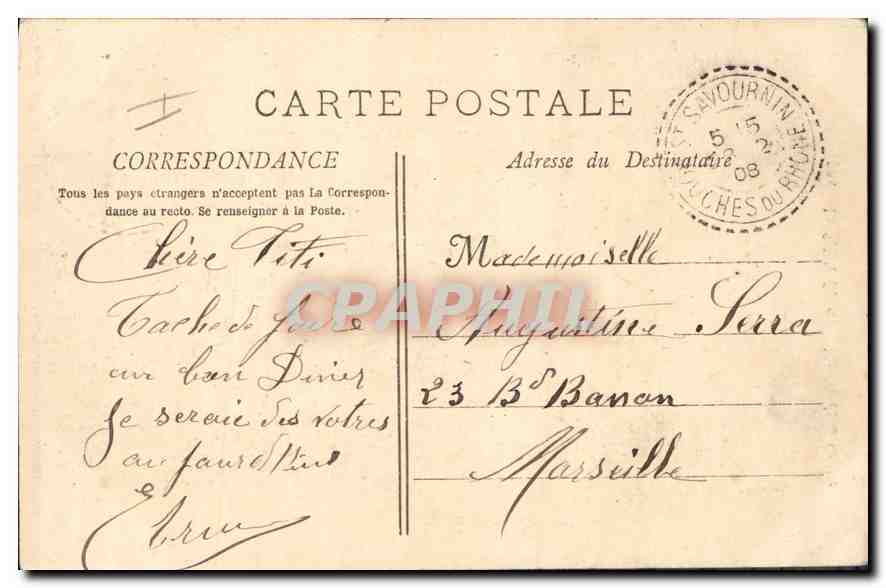 CARTE POSTALE
CORRESPONDANCE
Tous les pays etrangers n'acceptent pas La Correspon-
dance au recto. Se renseigner à la Poste.
Chère Titi
Tache de faire
un bon Diner
Je seraie des votres
au
Adresse du Destinataire
ST SAVOURNIN
BOUCHES DU RHONE
5 15
2
08
Mademoiselle
Augustine Serra
23 Bd Banon
Marseille
CPAPHIL